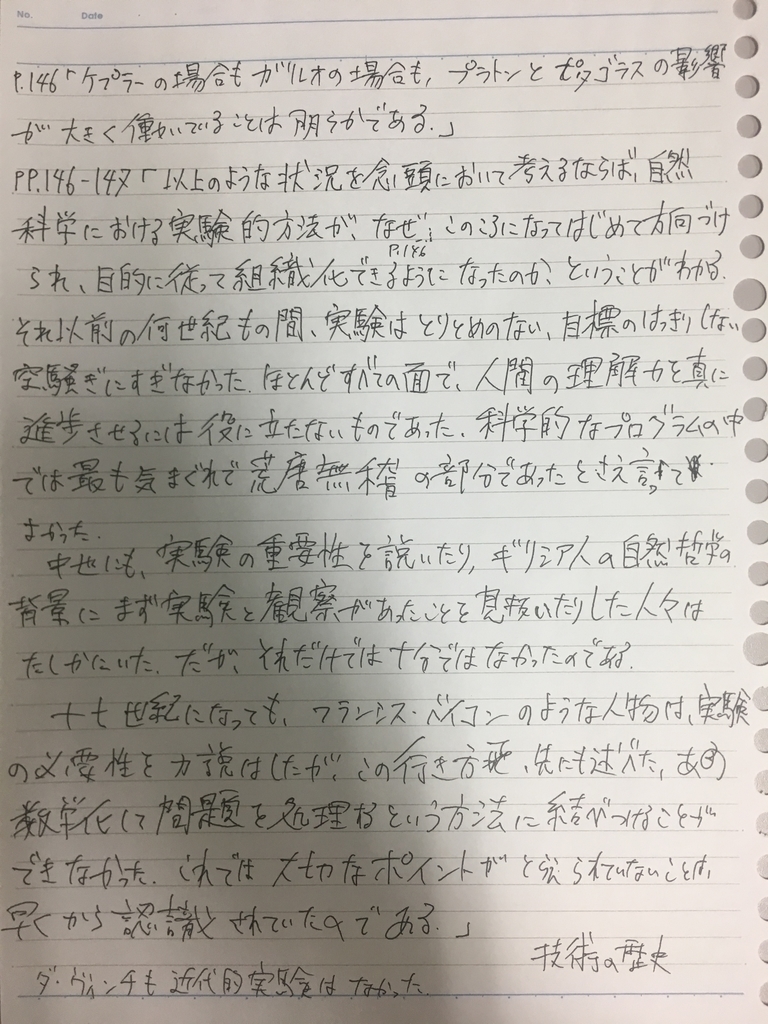 No.
Date
P.146「ケプラーの場合もガリレオの場合も、プラトンとピタゴラスの影響
が大きく働いていることは明らかである。」
PP.146-147「以上のような状況を念頭において考えるならば、自然
科学における実験的方法が、なぜ、このころになってはじめて方向づけ
P.146
られ、目的に従って組織化できるようになったのか、ということがわかる。
それ以前の何世紀もの間、実験はとりとめのない、目標のはっきりしない
空騒ぎにすぎなかった。ほとんどすべての面で、人間の理解力を真に
進歩させるには役に立たないものであった。科学的なプログラムの中
では最も気まぐれで荒唐無稽の部分であったとさえ言って
よかった。
中世にも、実験の重要性を説いたり、ギリシア人の自然哲学の
背景にまず実験と観察があったことを見抜いたりした人々は
たしかにいた。だが、それだけでは十分ではなかったのである。
十七世紀になっても、フランシス・ベイコンのような人物は、実験
の必要性を力説はしたが、この行き方を、先にも述べた、あの
数学化して問題を処理するという方法に結びつけることが
できなかった。これでは大切なポイントがとらえられていないことは、
早くから認識されていたのである。」
技術の歴史
ダ・ヴィンチも近代的実験はなかった。